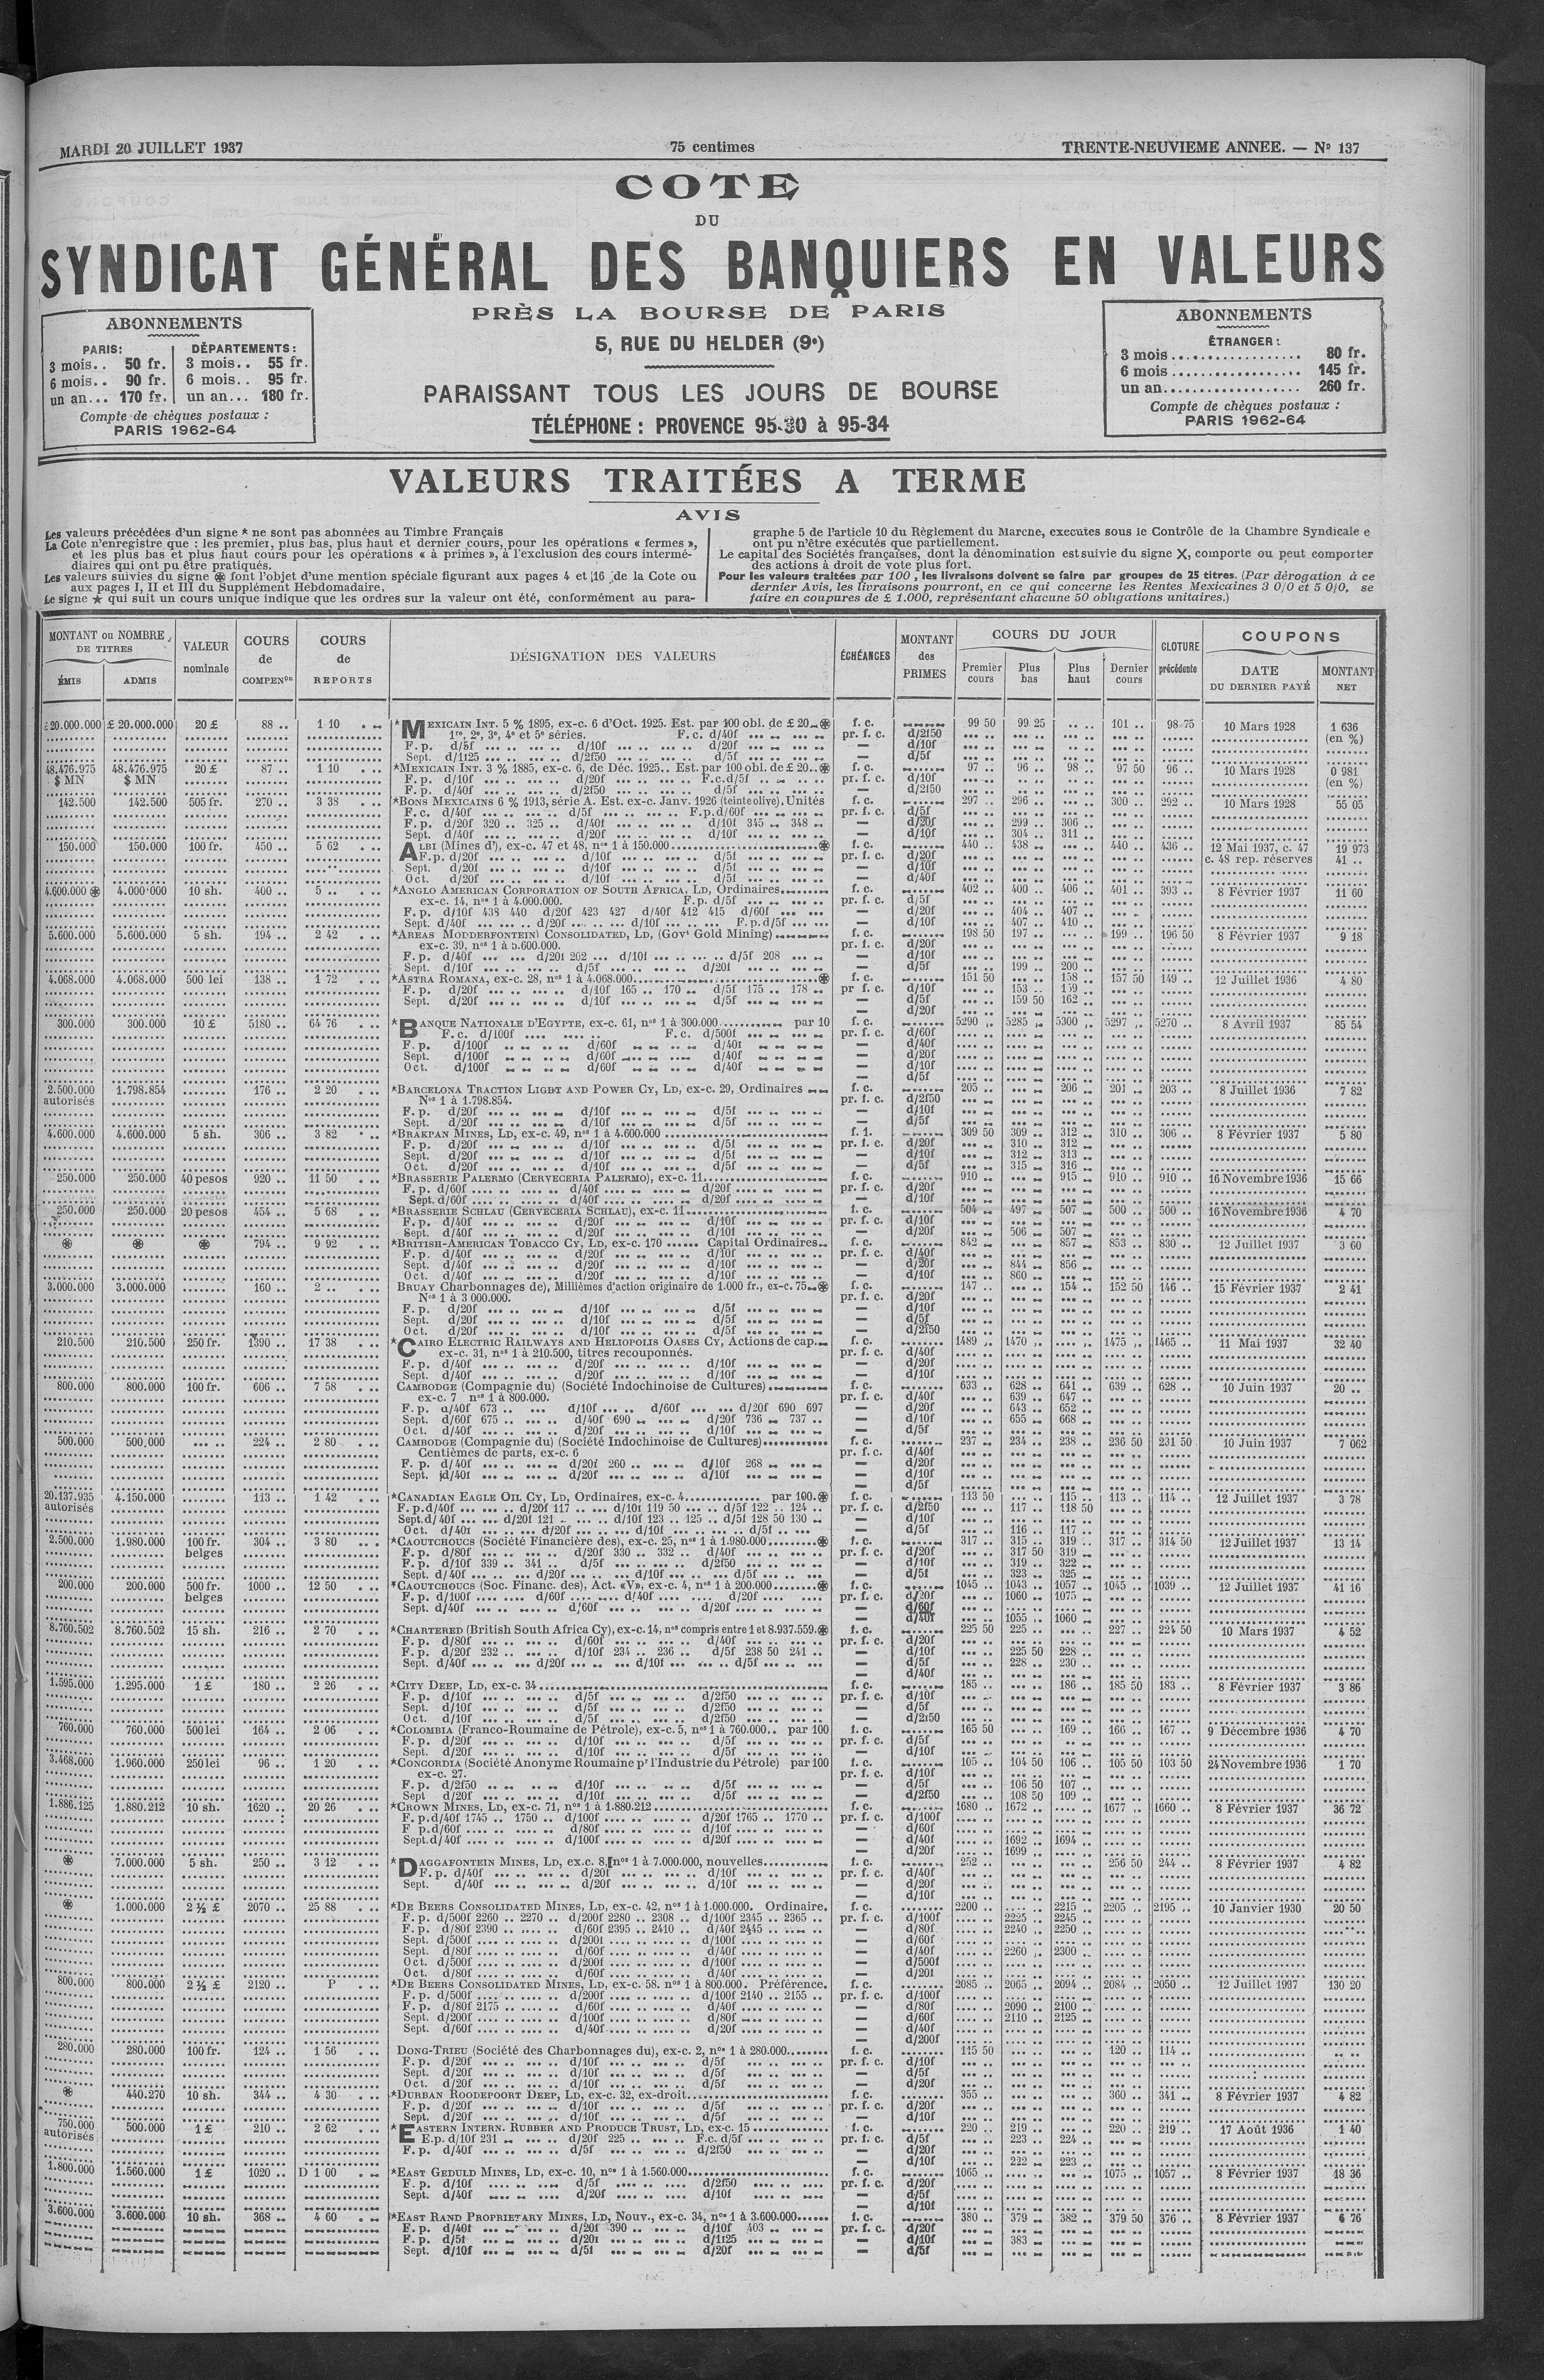 MARDI 20 JUILLET 1937 75 centimes TRENTE-NEUVIEME ANNEE. — N° 137
COTE
DU
SYNDICAT GÉNÉRAL DES BANQUIERS EN VALEURS
PRÈS LA BOURSE DE PARIS
5, RUE DU HELDER (9e)
PARAISSANT TOUS LES JOURS DE BOURSE
TÉLÉPHONE : PROVENCE 95-30 à 95-34
ABONNEMENTS
PARIS: DÉPARTEMENTS:
3 mois.. 50 fr. 3 mois.. 55 fr.
6 mois.. 90 fr. 6 mois.. 95 fr.
un an... 170 fr. un an... 180 fr.
Compte de chèques postaux :
PARIS 1962-64
ABONNEMENTS
ÉTRANGER:
3 mois 80 fr.
6 mois 145 fr.
un an 260 fr.
Compte de chèques postaux :
PARIS 1962-64
VALEURS TRAITÉES A TERME
AVIS
Les valeurs précédées d'un signe * ne sont pas abonnées au Timbre Français
La Cote n'enregistre que : les premier, plus bas, plus haut et dernier cours, pour les opérations « fermes »,
et les plus bas et plus haut cours pour les opérations « à primes », à l'exclusion des cours intermé-
diaires qui ont pu être pratiqués.
Les valeurs suivies du signe ⊛ font l'objet d'une mention spéciale figurant aux pages 4 et 16 de la Cote ou
aux pages I, II et III du Supplément Hebdomadaire.
Le signe ★ qui suit un cours unique indique que les ordres sur la valeur ont été, conformément au para-
graphe 5 de l'article 10 du Règlement du Marche, executes sous le Contrôle de la Chambre Syndicale e
ont pu n'être exécutés que partiellement.
Le capital des Sociétés françaises, dont la dénomination est suivie du signe X, comporte ou peut comporter
des actions à droit de vote plus fort.
Pour les valeurs traitées par 100, les livraisons doivent se faire par groupes de 25 titres. (Par dérogation à ce
dernier Avis, les livraisons pourront, en ce qui concerne les Rentes Mexicaines 3 0/0 et 5 0/0, se
faire en coupures de £ 1.000, représentant chacune 50 obligations unitaires.)
MONTANT ou NOMBRE DE TITRES ÉMIS ADMIS
VALEUR nominale
COURS de COMPENon
COURS de REPORTS
DÉSIGNATION DES VALEURS
ÉCHÉANCES
MONTANT des PRIMES
COURS DU JOUR Premier cours Plus bas Plus haut Dernier cours
CLOTURE précédente
COUPONS DATE DU DERNIER PAYÉ MONTANT NET
£ 20.000.000 £ 20.000.000 20 £ 88 .. 1 10 *MEXICAIN INT. 5 % 1895, ex-c. 6 d'Oct. 1925. Est. par 100 obl. de £ 20 ⊛ f. c. 99 50 99 25 101 .. 98 75 10 Mars 1928 1 636
1re, 2e, 3e, 4e et 5e séries. F. c. d/40f pr. f. c. d/2f50 (en %)
F. p. d/5f d/10f d/20f — d/10f
Sept. d/1f25 d/2f50 d/5f — d/5f
48.476.975 48.476.975 20 £ 87 .. 1 10 *MEXICAIN INT. 3 % 1885, ex-c. 6, de Déc. 1925.. Est. par 100 obl. de £ 20..⊛ f. c. 97 .. 96 .. 98 .. 97 50 96 .. 10 Mars 1928 0 981
$ MN $ MN F. p. d/10f d/20f F.c.d/5f pr. f. c. d/10f (en %)
F. p. d/40f d/2f50 d/5f — d/2f50
142.500 142.500 505 fr. 270 .. 3 38 *BONS MEXICAINS 6 % 1913, série A. Est. ex-c. Janv. 1926 (teinte olive). Unités f. c. 297 .. 296 .. 300 .. 292 .. 10 Mars 1928 55 05
F. c. d/40f d/5f F.p.d/60f pr. f. c. d/5f
F. p. d/20f 320 .. 325 .. d/40f d/10f 345 348 — d/20f 299 .. 306 ..
Sept. d/40f d/20f d/10f — d/10f 304 .. 311 ..
150.000 150.000 100 fr. 450 .. 5 62 ALBI (Mines d'), ex-c. 47 et 48, nos 1 à 150.000 ⊛ f. c. 440 .. 438 .. 440 .. 436 .. 12 Mai 1937, c. 47 19 973
F. p. d/20f d/10f d/5f pr. f. c. d/20f c. 48 rep. réserves 41 ..
Sept. d/20f d/10f d/5f — d/10f
Oct. d/20f d/10f d/5f — d/40f
4.600.000 ⊛ 4.000.000 10 sh. 400 .. 5 .. *ANGLO AMERICAN CORPORATION OF SOUTH AFRICA, LD, Ordinaires f. c. 402 .. 400 .. 406 .. 401 .. 393 .. 8 Février 1937 11 60
ex-c. 14, nos 1 à 4.000.000. F.p. d/5f pr. f. c. d/5f
F. p. d/10f 438 440 d/20f 423 427 d/40f 412 415 d/60f — d/20f 404 .. 407 ..
Sept. d/40f d/20f d/10f F.p.d/5f — d/10f 407 .. 410 ..
5.600.000 5.600.000 5 sh. 194 .. 2 42 *AREAS MODDERFONTEIN) CONSOLIDATED, LD, (Govt Gold Mining) f. c. 198 50 197 .. 199 .. 196 50 8 Février 1937 9 18
ex-c. 39, nos 1 à 5.600.000. pr. f. c. d/20f
F. p. d/40f d/20f 202 d/10f d/5f 208 — d/10f
Sept. d/10f d/5f d/20f — d/5f 199 .. 200 ..
4.068.000 4.068.000 500 lei 138 .. 1 72 *ASTRA ROMANA, ex-c. 28, nos 1 à 4.068.000 ⊛ f. c. 151 50 158 .. 157 50 149 .. 12 Juillet 1936 4 80
F. p. d/20f d/10f 165 .. 170 d/5f 175 .. 178 pr f. c. d/10f 153 .. 159 ..
Sept. d/20f d/10f d/5f — d/5f 159 50 162 ..
— d/20f
300.000 300.000 10 £ 5180 .. 64 76 *BANQUE NATIONALE D'EGYPTE, ex-c. 61, nos 1 à 300.000 par 10 f. c. 5290 .. 5285 .. 5300 .. 5297 .. 5270 .. 8 Avril 1937 85 54
F. c. d/100f F. c. d/500f pr. f. c. d/60f
F. p. d/100f d/60f d/40f — d/40f
Sept. d/100f d/60f d/40f — d/20f
Oct. d/100f d/60f d/40f — d/10f
— d/5f
2.500.000 1.798.854 176 .. 2 20 *BARCELONA TRACTION LIGHT AND POWER CY, LD, ex-c. 29, Ordinaires f. c. 205 .. 206 .. 201 .. 203 .. 8 Juillet 1936 7 82
autorisés Nos 1 à 1.798.854. pr. f. c. d/2f50
F. p. d/20f d/10f d/5f — d/10f
Sept. d/20f d/10f d/5f — d/5f
4.600.000 4.600.000 5 sh. 306 .. 3 82 *BRAKPAN MINES, LD, ex-c. 49, nos 1 à 4.600.000 f. 1. 309 50 309 .. 312 .. 310 .. 306 .. 8 Février 1937 5 80
F. p. d/20f d/10f d/5f pr. f. c. d/20f 310 .. 312 ..
Sept. d/20f d/10f d/5f — d/10f 312 .. 313 ..
Oct. d/20f d/10f d/5f — d/5f 315 .. 316 ..
250.000 250.000 40 pesos 920 .. 11 50 *BRASSERIE PALERMO (CERVECERIA PALERMO), ex-c. 11 f. c. 910 .. 915 .. 910 .. 910 .. 16 Novembre 1936 15 66
F. p. d/60f d/40f d/20f pr. f. c. d/20f
Sept. d/60f d/40f d/20f — d/10f
250.000 250.000 20 pesos 454 .. 5 68 *BRASSERIE SCHLAU (CERVECERIA SCHLAU), ex-c. 11 f. c. 504 .. 497 .. 507 .. 500 .. 500 .. 16 Novembre 1936 4 70
F. p. d/40f d/20f d/10f pr. f. c. d/10f
Sept. d/40f d/20f d/10f — d/20f 506 .. 507 ..
⊛ ⊛ ⊛ 794 .. 9 92 *BRITISH-AMERICAN TOBACCO CY, LD, ex-c. 170 Capital Ordinaires f. c. 842 .. 857 .. 853 .. 830 .. 12 Juillet 1937 3 60
F. p. d/40f d/20f d/10f pr. f. c. d/40f
Sept. d/40f d/20f d/10f — d/20f 844 .. 856 ..
Oct. d/40f d/20f d/10f — d/10f 860 ..
3.000.000 3.000.000 160 .. 2 .. BRUAY Charbonnages de), Millièmes d'action originaire de 1.000 fr., ex-c. 75 ⊛ f. c. 147 .. 154 .. 152 50 146 .. 15 Février 1937 2 41
Nos 1 à 3 000.000. pr. f. c. d/20f
F. p. d/20f d/10f d/5f — d/10f
Sept. d/20f d/10f d/5f — d/5f
Oct. d/20f d/10f d/5f — d/2f50
210.500 210.500 250 fr. 1390 .. 17 38 *CAIRO ELECTRIC RAILWAYS AND HELIOPOLIS OASES CY, Actions de cap. f. c. 1489 .. 1470 .. 1475 .. 1465 .. 11 Mai 1937 32 40
ex-c. 31, nos 1 à 210.500, titres recouponnés. pr. f. c. d/40f
F. p. d/40f d/20f d/10f — d/20f
Sept. d/40f d/20f d/10f — d/10f
800.000 800.000 100 fr. 606 .. 7 58 CAMBODGE (Compagnie du) (Société Indochinoise de Cultures) f. c. 633 .. 628 .. 641 .. 639 .. 628 .. 10 Juin 1937 20 ..
ex-c. 7 nos 1 à 800.000. pr. f. c. d/40f 639 .. 647 ..
F. p. d/40f 673 d/10f d/60f d/20f 690 697 — d/20f 643 .. 652 ..
Sept. d/60f 675 d/40f 690 d/20f 736 737 — d/10f 655 .. 668 ..
Oct. d/40f d/20f d/10f — d/5f
500.000 500.000 224 .. 2 80 CAMBODGE (Compagnie du) (Société Indochinoise de Cultures) f. c. 237 .. 234 .. 238 .. 236 50 231 50 10 Juin 1937 7 062
Centièmes de parts, ex-c. 6 pr. f. c. d/40f
F. p. d/40f d/20f 260 d/10f 268 — d/20f
Sept. d/40f d/20f d/10f — d/10f
— d/5f
20.137.935 4.150.000 113 .. 1 42 *CANADIAN EAGLE OIL CY, LD, Ordinaires, ex-c. 4 par 100.⊛ f. c. 113 50 115 .. 113 .. 114 .. 12 Juillet 1937 3 78
autorisés F. p.d/40f d/20f 117 d/10f 119 50 d/5f 122 .. 124 .. pr. f. c. d/2f50 117 .. 118 50
Sept.d/40f d/20f 121 d/10f 123 .. 125 .. d/5f 128 50 130 — d/10f
Oct. d/40f d/20f d/10f d/5f — d/5f 116 .. 117 ..
2.500.000 1.980.000 100 fr. 304 .. 3 80 *CAOUTCHOUCS (Société Financière des), ex-c. 25, nos 1 à 1.980.000 ⊛ f. c. 317 .. 315 .. 319 .. 317 .. 314 50 12 Juillet 1937 13 14
belges F. p. d/80f d/20f 330 .. 332 .. d/40f pr. f. c. d/20f 317 50 319 ..
F. p. d/10f 339 .. 341 .. d/5f d/2f50 — d/10f 319 .. 322 ..
Sept. d/40f d/20f d/10f d/5f — d/5f 323 .. 325 ..
200.000 200.000 500 fr. 1000 .. 12 50 *CAOUTCHOUCS (Soc. Financ. des), Act. «V», ex-c. 4, nos 1 à 200.000 ⊛ f. c. 1045 .. 1043 .. 1057 .. 1045 .. 1039 .. 12 Juillet 1937 41 16
belges F. p. d/100f d/60f d/40f d/20f pr. f. c. d/20f 1060 .. 1075 ..
Sept. d/40f d/60f d/20f — d/60f
— d/40f 1055 .. 1060 ..
8.760.502 8.760.502 15 sh. 216 .. 2 70 *CHARTERED (British South Africa Cy), ex-c. 14, nos compris entre 1 et 8.937.559.⊛ f. c. 225 50 225 .. 227 .. 224 50 10 Mars 1937 4 52
F. p. d/80f d/60f d/40f pr. f. c. d/20f
F. p. d/20f 232 d/10f 234 .. 236 .. d/5f 238 50 241 .. — d/10f 225 50 228 ..
Sept. d/40f d/20f d/10f d/5f — d/5f 228 .. 230 ..
— d/40f
1.595.000 1.295.000 1 £ 180 .. 2 26 *CITY DEEP, LD, ex-c. 34 f. c. 185 .. 186 .. 185 50 183 .. 8 Février 1937 3 86
F. p. d/10f d/5f d/2f50 pr. f. c. d/10f
Sept. d/10f d/5f d/2f50 — d/5f
Oct. d/10f d/5f d/2f50 — d/2f50
760.000 760.000 500 lei 164 .. 2 06 *COLOMBIA (Franco-Roumaine de Pétrole), ex-c. 5, nos 1 à 760.000.. par 100 f. c. 165 50 169 .. 166 .. 167 .. 9 Décembre 1936 4 70
F. p. d/20f d/10f d/5f pr. f. c. d/5f
Sept. d/20f d/10f d/5f — d/10f
3.468.000 1.960.000 250 lei 96 .. 1 20 *CONCORDIA (Société Anonyme Roumaine pr l'Industrie du Pétrole) par 100 f. c. 105 .. 104 50 106 .. 105 50 103 50 24 Novembre 1936 1 70
ex-c. 27. pr. f. c. d/10f
F. p. d/2f50 d/10f d/5f — d/5f 106 50 107 ..
Sept d/20f d/10f d/5f — d/2f50 108 50 109 ..
1.886.125 1.880.212 10 sh. 1620 .. 20 26 *CROWN MINES, LD, ex-c. 71, nos 1 à 1.880.212 f. c. 1680 .. 1672 .. 1677 .. 1660 .. 8 Février 1937 36 72
F. p.d/40f 1745 .. 1750 .. d/100f d/20f 1765 .. 1770 .. pr. f. c. d/100f
F p.d/60f d/80f d/10f — d/60f
Sept.d/40f d/100f d/20f — d/40f 1692 .. 1694 ..
— d/20f 1699 ..
⊛ 7.000.000 5 sh. 250 .. 3 12 *DAGGAFONTEIN MINES, LD, ex.c. 8, nos 1 à 7.000.000, nouvelles f. c. 252 .. 256 50 244 .. 8 Février 1937 4 82
F. p. d/40f d/20f d/10f pr. f. c. d/40f
Sept. d/40f d/20f d/10f — d/20f
— d/10f
⊛ 1.000.000 2 ½ £ 2070 .. 25 88 *DE BEERS CONSOLIDATED MINES, LD, ex-c. 42, nos 1 à 1.000.000. Ordinaire. f. c. 2200 .. 2215 .. 2205 .. 2195 .. 10 Janvier 1930 20 50
F. p. d/500f 2260 .. 2270 .. d/200f 2280 .. 2308 .. d/100f 2345 .. 2365 .. pr. f. c. d/100f 2225 .. 2245 ..
F. p. d/80f 2390 d/60f 2395 .. 2410 .. d/40f 2445 — d/80f 2240 .. 2250 ..
Sept. d/500f d/200f d/100f — d/60f
Sept. d/80f d/60f d/40f — d/40f 2260 .. 2300 ..
Oct. d/500f d/200f d/100f — d/500f
Oct. d/80f d/60f d/40f — d/20f
800.000 800.000 2 ½ £ 2120 .. P *DE BEERS CONSOLIDATED MINES, LD, ex-c. 58. nos 1 à 800.000. Préférence. f. c. 2085 .. 2065 .. 2094 .. 2084 .. 2050 .. 12 Juillet 1937 130 20
F. p. d/500f d/200f d/100f 2140 .. 2155 .. pr. f. c. d/100f
F. p. d/80f 2175 d/60f d/40f — d/80f 2090 .. 2100 ..
Sept. d/200f d/100f d/80f — d/60f 2110 .. 2125 ..
Sept. d/60f d/40f d/20f — d/40f
— d/200f
280.000 280.000 100 fr. 124 .. 1 56 DONG-TRIEU (Société des Charbonnages du), ex-c. 2, nos 1 à 280.000 f. c. 115 50 120 .. 114 ..
F. p. d/20f d/10f d/5f pr. f. c. d/10f
Sept. d/20f d/10f d/5f — d/5f
Oct. d/20f d/10f d/5f — d/20f
⊛ 440.270 10 sh. 344 .. 4 30 *DURBAN ROODEPOORT DEEP, LD, ex-c. 32, ex-droit f. c. 355 .. 360 .. 341 .. 8 Février 1937 4 82
F. p. d/20f d/10f d/5f pr. f. c. d/20f
Sept. d/20f d/10f d/5f — d/10f
750.000 500.000 1 £ 210 .. 2 62 *EASTERN INTERN. RUBBER AND PRODUCE TRUST, LD, ex-c. 15 f. c. 220 .. 219 .. 220 .. 219 .. 17 Août 1936 1 40
autorisés E.p. d/10f 231 d/20f 225 F.c. d/5f pr. f. c. d/5f 223 .. 224 ..
F. p. d/40f d/5f d/2f50 — d/20f
— d/10f 222 .. 223 ..
1.800.000 1.560.000 1 £ 1020 .. D 1 00 *EAST GEDULD MINES, LD, ex-c. 10, nos 1 à 1.560.000 f. c. 1065 .. 1075 .. 1057 .. 8 Février 1937 18 36
F. p. d/10f d/5f d/2f50 pr. f. c. d/20f
Sept. d/40f d/20f d/10f — d/5f
— d/10f
3.600.000 3.600.000 10 sh. 368 .. 4 60 *EAST RAND PROPRIETARY MINES, LD, Nouv., ex-c. 34, nos 1 à 3.600.000 f. c. 380 .. 379 .. 382 .. 379 50 376 .. 8 Février 1937 6 76
F. p. d/40f d/20f 390 d/10f 403 pr. f. c. d/20f
F. p. d/5f d/20f d/1f25 — d/10f 383 ..
Sept. d/10f d/5f d/20f — d/5f